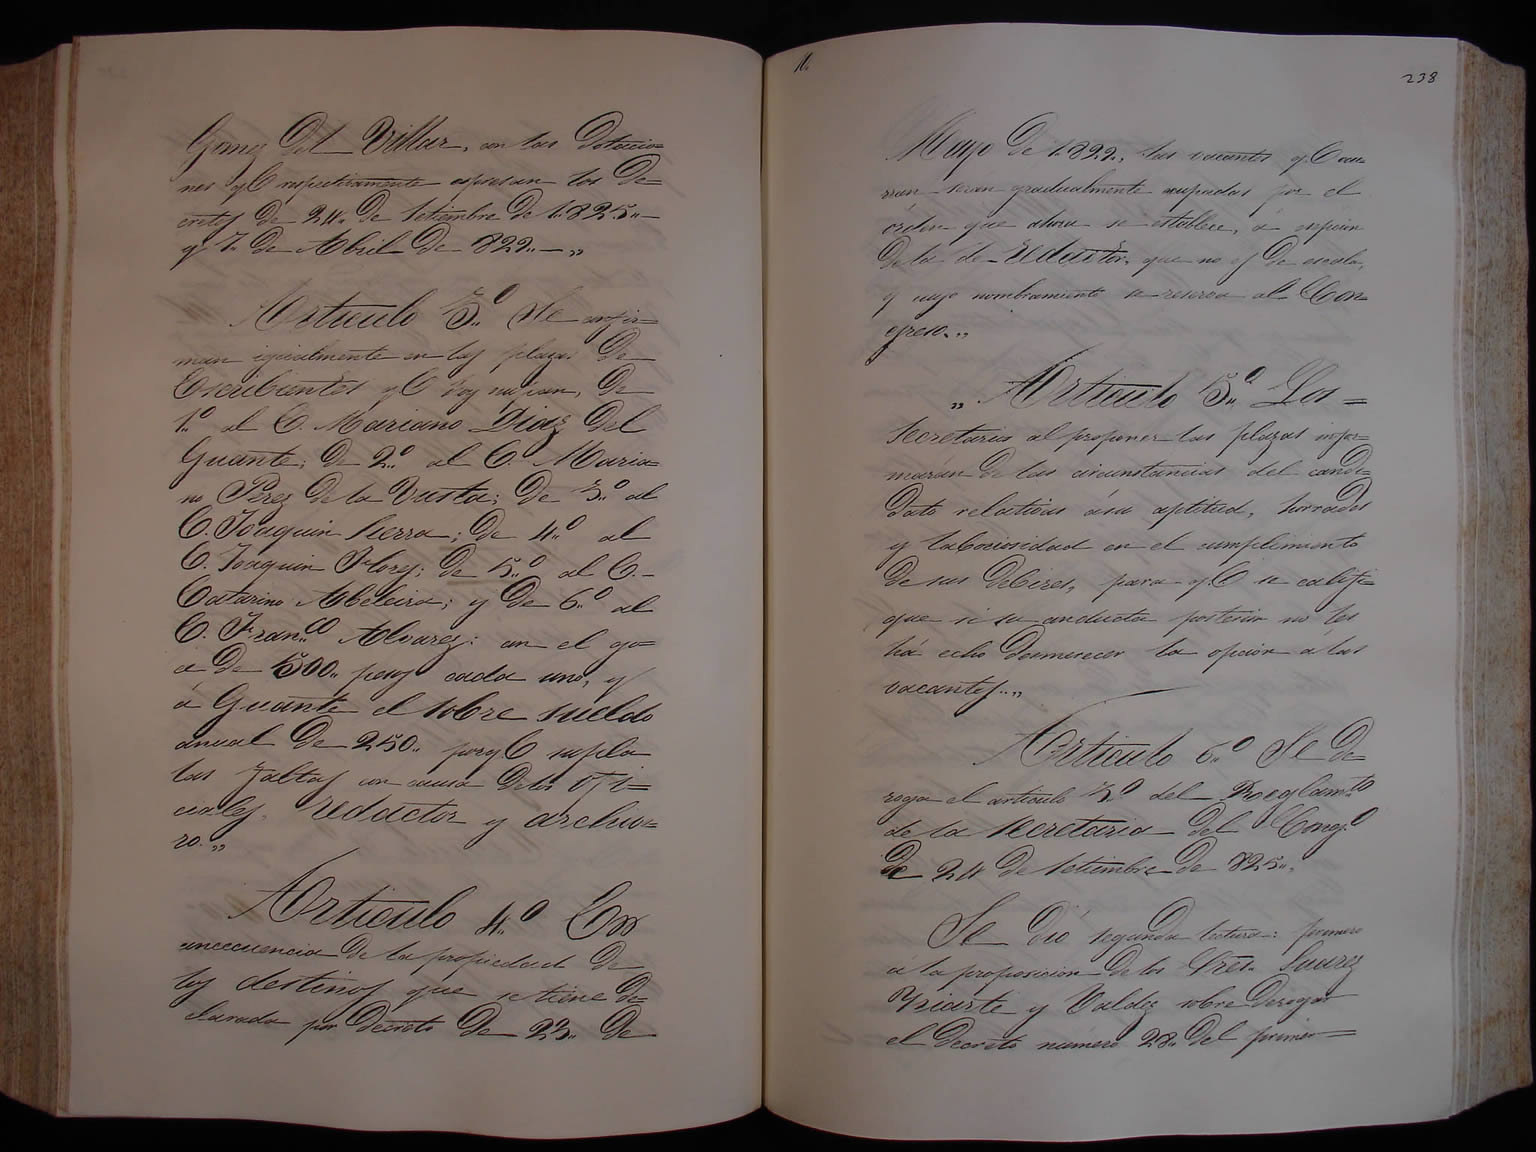 Gomez Del Villar, con las Dotacio=
nes q.e respectivamente espresan los De=
cretos de 24., de Setiembre de 1.825,,—
y 7. de Abril de 829.—,,
Articulo 3.,º Se confir=
man igualmente en las plazas De
Escribientes q.e hoy ocupan, De
1.º al C. Mariano Diaz Del
Guante; De 2.º al C. Maria=
no Perez de la Vusta; De 3.,º al
C. Joaquin Sierra; De 4.,º al
C. Joaquin Flores; De 5.,º al C.—
Catarino Abeleira; y De 6.º al
C. Fran.co Alvarez: con el go=
ce De 500., pesos cada uno, y
á Guante el sobre sueldo
anual De 250., porq.e supla
las faltas con causa De los ofi=
ciales, redactor y archive=
ro.,,
Articulo 4.º En
concecuencia De la propiedad De
los destinos que se tiene De=
clarada por Decreto De 23., De
238
Mayo De 1.829., las vacantes q.e ocu=
rran serán gradualmente ocupadas por el
órden que ahora se establece, á espcion
De la de Redactor, que no es De escala,
y cuyo nombramiento se reserva al Con=
greso.,,
,, Articulo 5.,º Los=
Secretarios al proponer las plazas infor=
marán De las circunstancias del candi=
Dato relativas á su aptitud, honrades
y laboriosidad en el cumplimiento
De sus deberes, para q.e se califi=
que si su conducta posterior no les
há echo Desmerecer la opcion á las
vacantes.,,
Articulo 6.,º Se De=
roga el articulo 3.º del Reglam.to
de la Secretaria Del Cong.o
de 24 De Setiembre De 825.,
Se Dió segunda lectura: primero
á la proposicion De los Sres. Suarez
Yriarte y Valdez sobre Derogar
el Decreto número 28., Del primer=